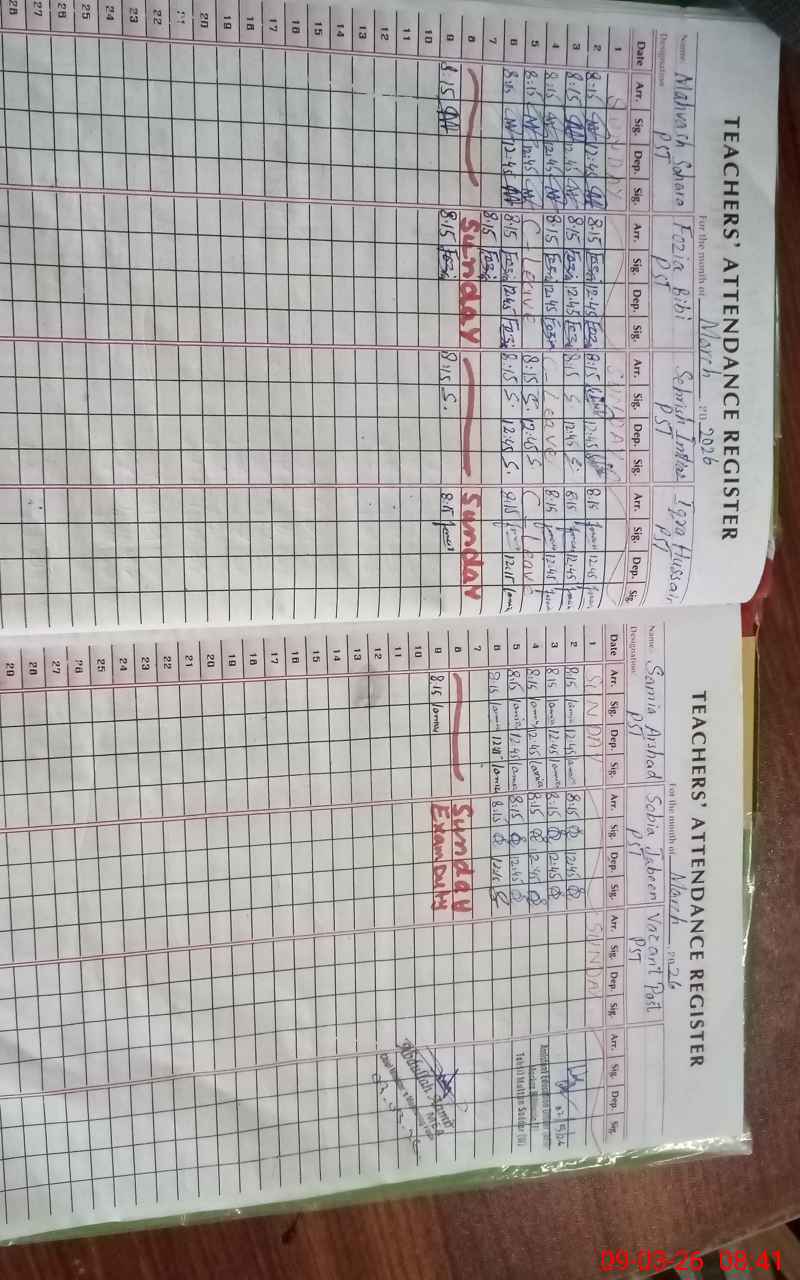 TEACHERS' ATTENDANCE REGISTER
For the month of March 2026
Name: Mahvash Sahara Fozia Bibi Sehrish Imtiaz Iqra Hussain
Designation PST PST PST PST
Date Arr. Sig. Dep. Sig. Arr. Sig. Dep. Sig. Arr. Sig. Dep. Sig. Arr. Sig. Dep. Sig.
1 SUNDAY SUNDAY
2 8:15 12:45 8:15 Fozia 12:45 Fozia 8:15 12:45 8:15 12:45
3 8:15 12:45 8:15 Fozia 12:45 Fozia 8:15 S. 12:45 S. 8:15 12:45
4 8:15 12:45 8:15 Fozia 12:45 Fozia C-Leave 8:15 12:45
5 8:15 12:45 C-Leave 8:15 S. 12:45 S. C-Leave
6 8:15 12:45 8:15 Fozia 12:45 Fozia 8:15 S. 12:45 S. 8:15 12:15
7 8:15 Fozia
8 Sunday Sunday
9 8:15 8:15 Fozia 8:15 S. 8:15
10
11
12
13
14
15
16
17
18
19
20
21
22
23
24
25
26
27
28
TEACHERS' ATTENDANCE REGISTER
For the month of March, 2026
Name: Samia Arshad Sobia Jabeen Vacant Post
Designation PST PST PST
Date Arr. Sig. Dep. Sig. Arr. Sig. Dep. Sig. Arr. Sig. Dep. Sig. Arr. Sig. Dep. Sig.
1 SUNDAY SUNDAY
2 8:15 12:45 8:15 12:45
3 8:15 12:45 8:15 12:45
4 8:15 12:45 8:15 12:45
5 8:15 12:45 8:15 12:45
6 8:15 8:15
7
8 Sunday
9 8:15 Exam Duty
10
11
12
13
14
15
16
17
18
19
20
21
22
23
24
25
26
27
28
29
Tehsil Multan Saddar
09-03-26 08:41